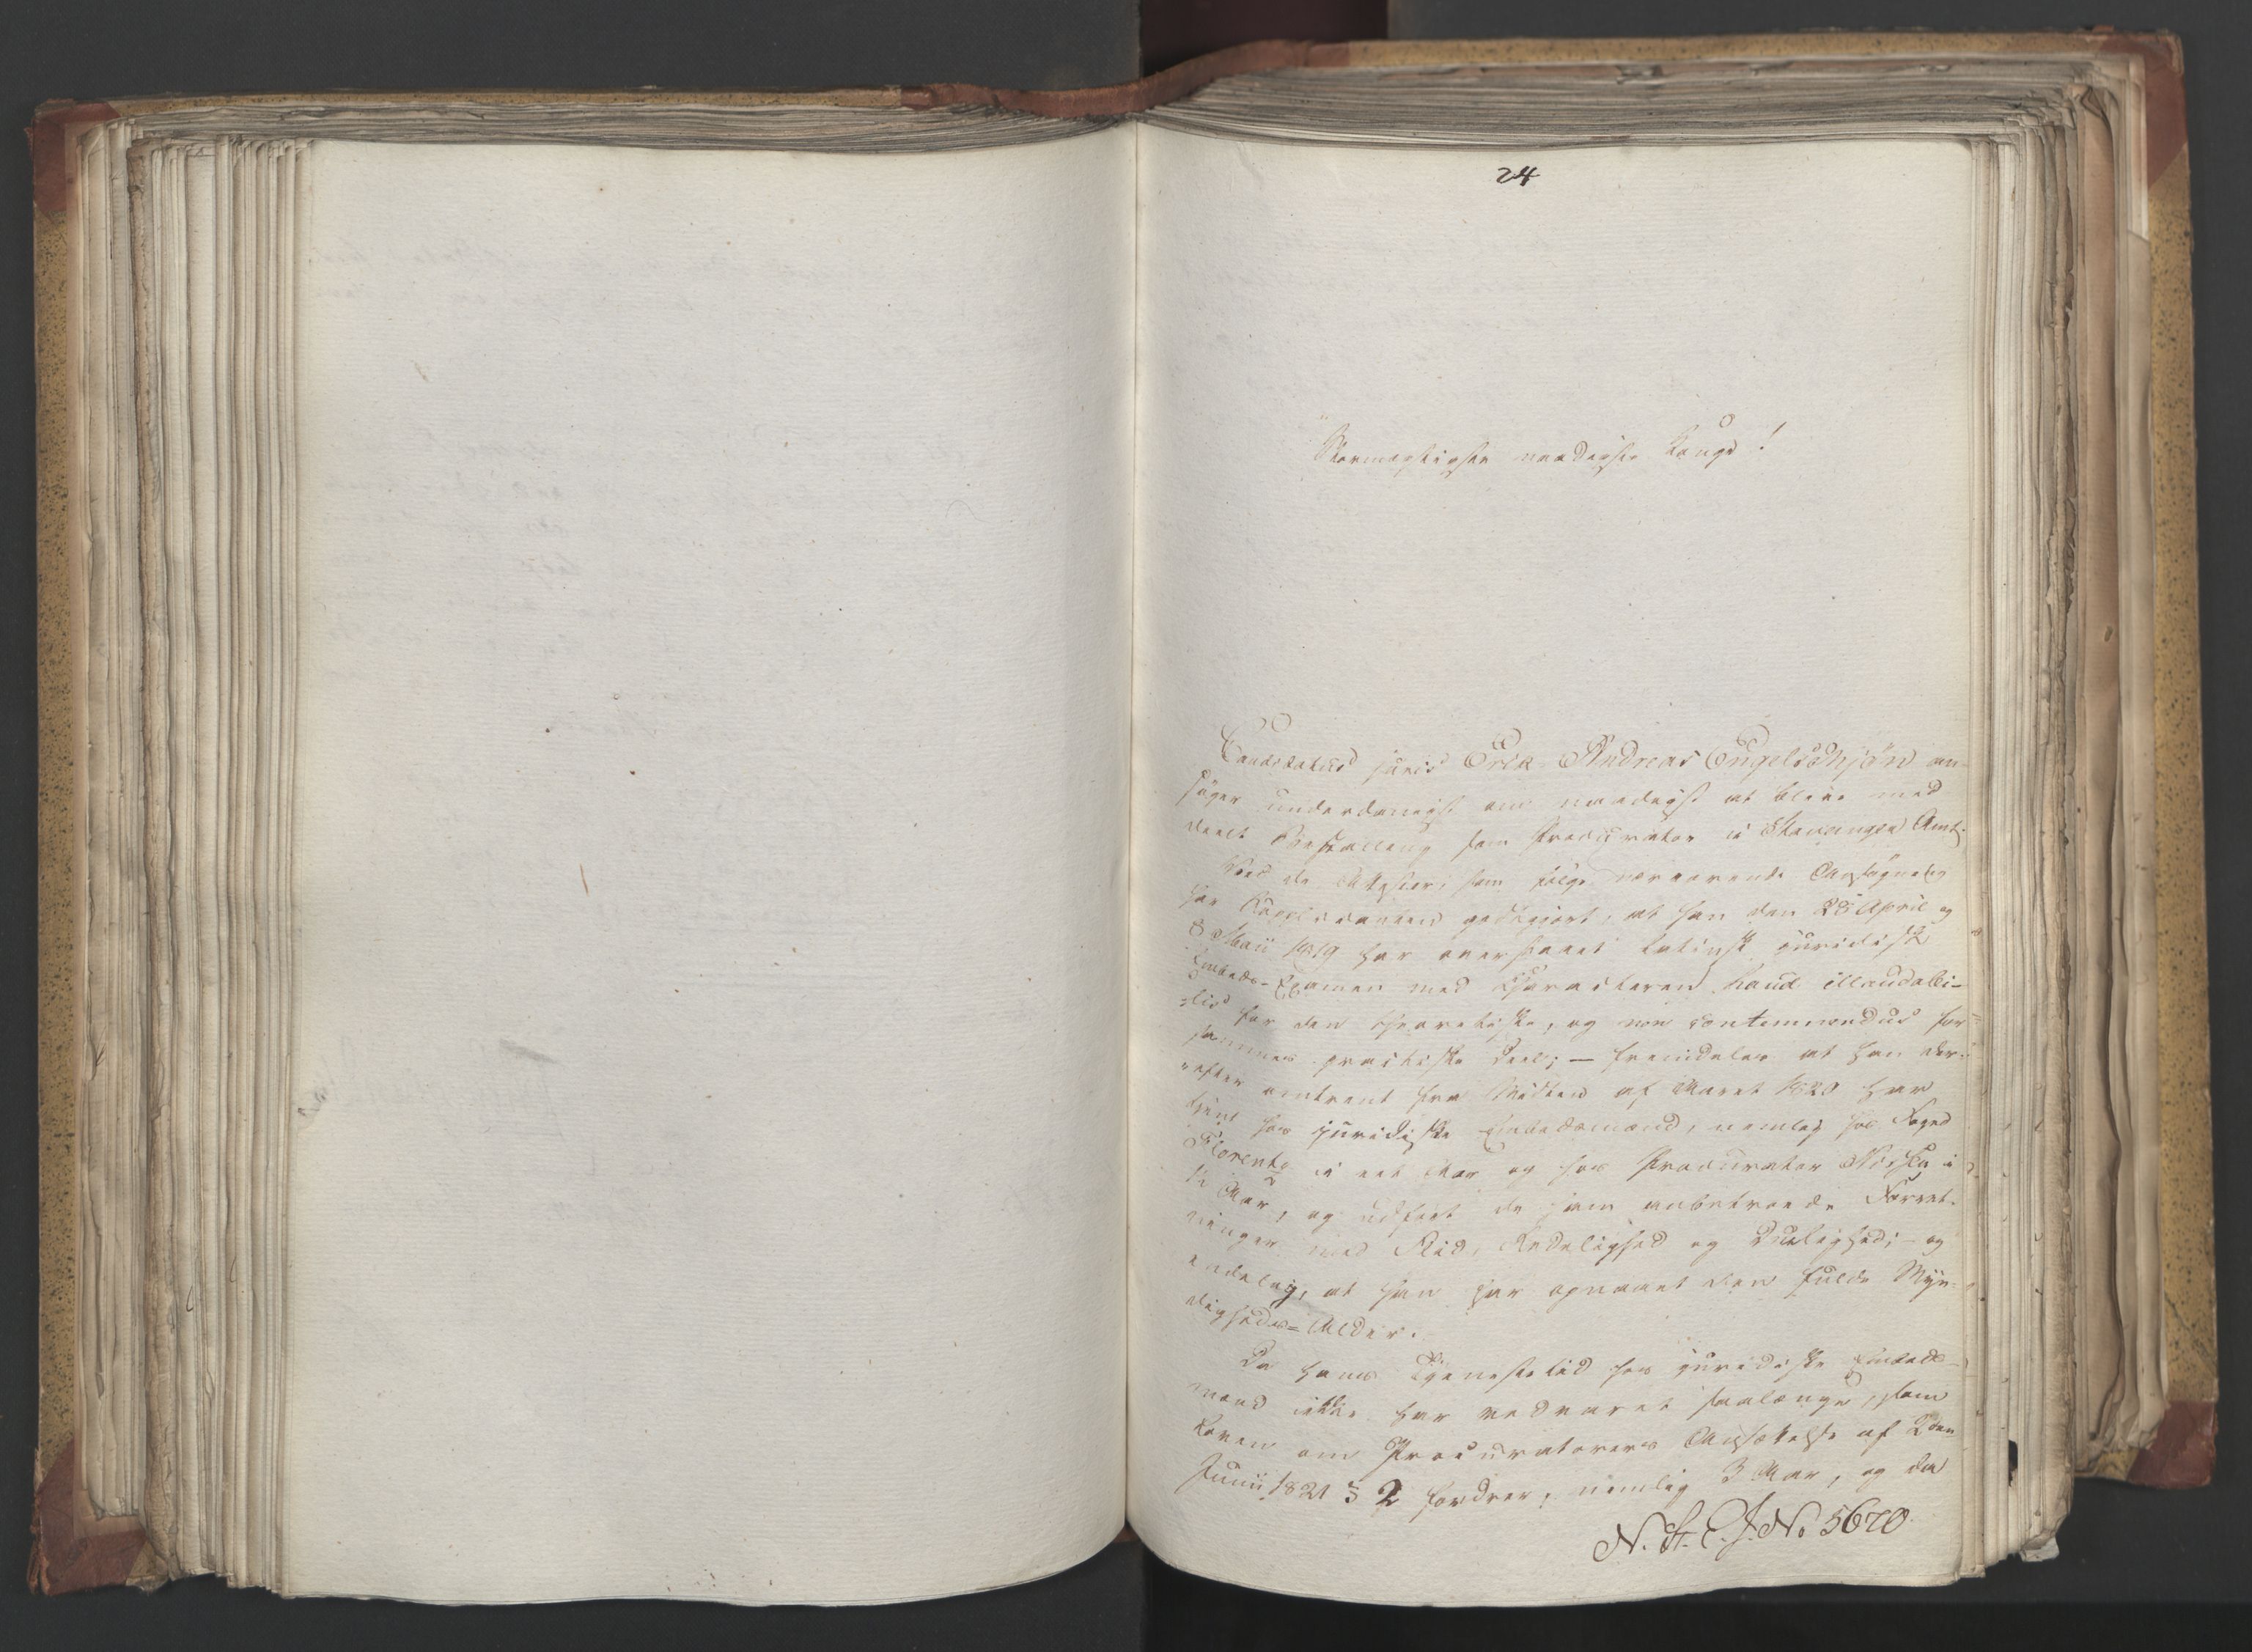 24
Stormægtigste naadigste Konge!
Candidatus juris Erik Andreas Engelschjøn an-
søger underdanigst om naadigst at blive med
deelt Bestalling som Procurator i Stavanger Amt.
Ved de Attester, som følge nærværende Ansøgning
har Supplicanten godtgjort, at han den 28 April og
8 Maii 1819 har overstaaet latinsk juridisk
Embeds-Examen med Characteren haud illaudabi-
=lis for den theoretiske, og non contemnendus for
sammes practiske Deel; — fremdeles at han der-
=efter omtrent fra Midten af Aaret 1820 har
tjent hos juridiske Embedsmænd, nemlig hos Foged
Florentz i eet Aar og hos Procurator i
1½ Aar, og udført de ham anbetroede Forret-
ninger med Flid, Redelighed og Duelighed; - og
endelig, at han har opnaaet den fulde Myn-
digheds=Alder.
Da hans Tjenestetid hos juridiske Embeds-
mænd ikke har vedvaret saalænge, som
Loven om Procuratorers Ansættelse af 2den
Junii 1821 § 2 fordrer, nemlig 3 Aar, og da
N. St. C. J. No 5670